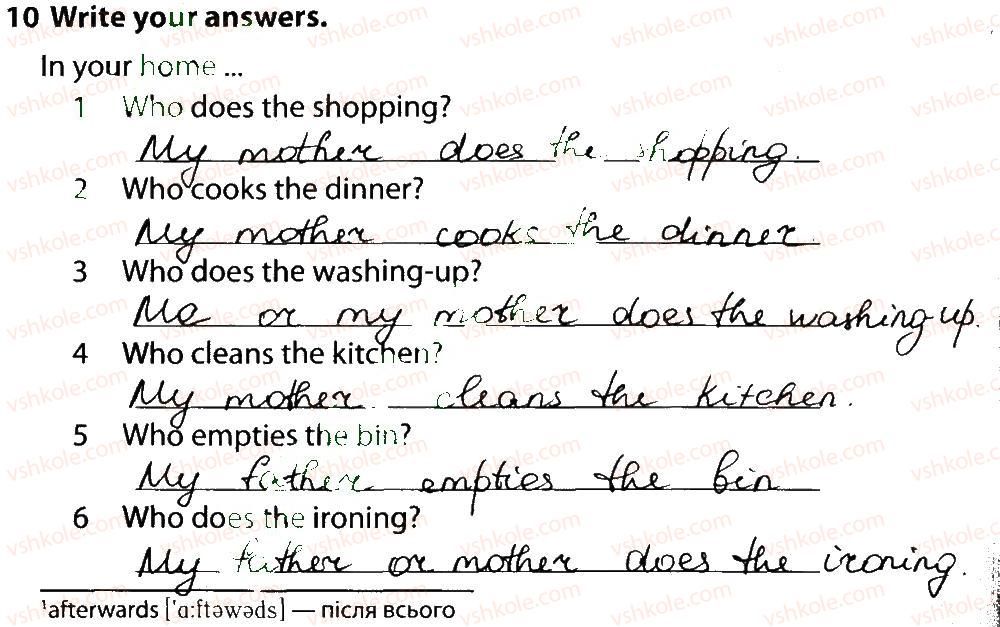 10 Write your answers.
In your home ...
1 Who does the shopping?
My mother does the shopping.
2 Who cooks the dinner?
My mother cooks the dinner
3 Who does the washing-up?
Me or my mother does the washing up.
4 Who cleans the kitchen?
My mother cleans the kitchen.
5 Who empties the bin?
My father empties the bin
6 Who does the ironing?
My father or mother does the ironing.
¹afterwards ['ɑ:ftəwəds] — після всього
vshkole.com